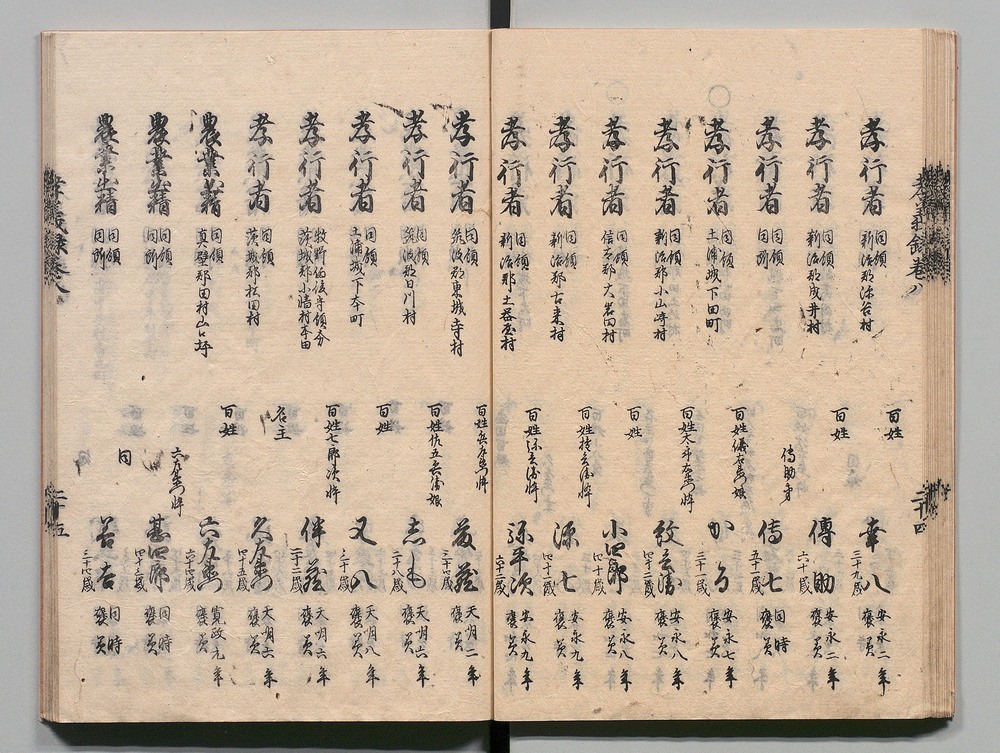 孝行者 同領 新治郡深谷村 百姓 幸八 三十九歳 安永二年 褒美
孝行者 同領 新治郡成井村 百姓 傳助 六十歳 安永二年 褒美
孝行者 同領 同所 傳助弟 傳七 五十一歳 同時 褒美
孝行者 同領 土浦城下田町 百姓儀右衛門娘 かる 三十一歳 安永七年 褒美
孝行者 同領 新治郡小山崎村 百姓 紋三郎 安永八年 褒美
孝行者 同領 信太郡大岩田村 百姓 小四郎 四十歳 安永八年 褒美
孝行者 同領 新治郡古来村 百姓 源七 四十一歳 安永九年 褒美
孝行者 同領 新治郡土器屋村 百姓 弥平次 六十二歳 安永九年 褒美
孝行者 同領 筑波郡東城寺村 百姓兵左衛門忰 藤蔵 三十一歳 天明二年 褒美
孝行者 同領 筑波郡日川村 百姓 娘 二十八歳 天明六年 褒美
孝行者 同領 土浦城下本町 百姓 又八 三十歳 天明八年 褒美
孝行者 牧野備後守領分 茨城郡小幡村本田 百姓七郎次忰 伴蔵 二十二歳 天明六年 褒美
孝行者 同領 茨城郡 名主 四十五歳 天明六年 褒美
農業出精 同領 真壁郡田村山ヶ坪 百姓 六左衛門 六十四歳 寛政元年 褒美
農業出精 同領 同所 六左衛門忰 甚四郎 四十三歳 同時 褒美
農業出精 同領 同所 同 善吉 三十七歳 同時 褒美